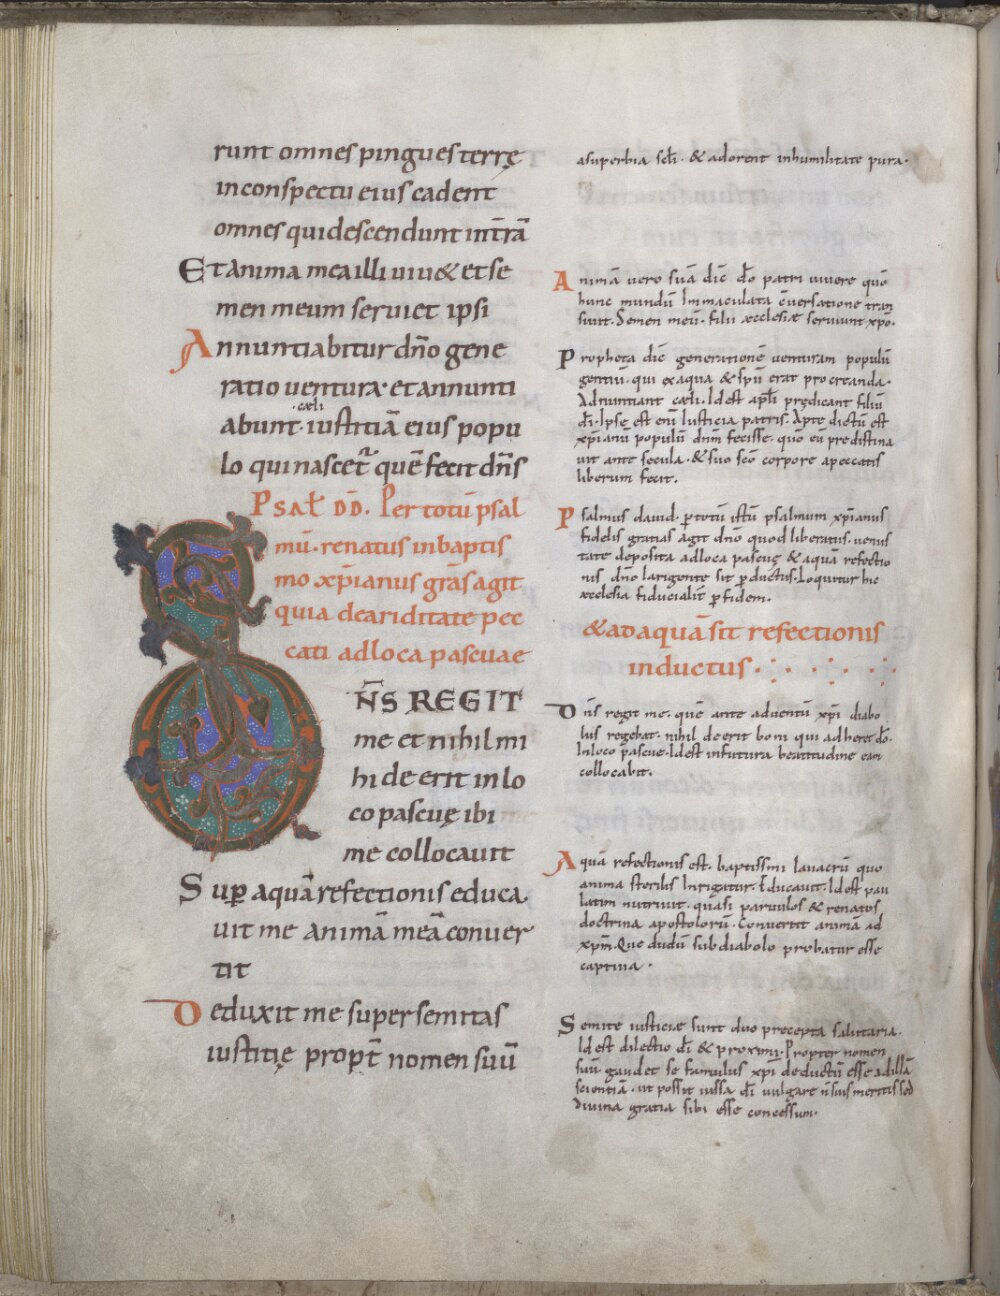 runt omnes pingues terrę
inconspectu eius cadent
omnes qui descendunt int̄rā
Et anima mea illi uiu& et se
men meum seruiet ipsi
Annuntiabitur dño gene
ratio uentura· et annunti
·cæli·
abunt· iustitiā eius popu
lo qui nascet̄ quē fecit dñs
Psał DD. Per totū psal
mū· renatus in baptis
mo xp̄ianus grās agit
quia de ariditate pec
cati ad loca pascuae
Ñs REGIT
me et nihil mi
hi de erit in lo
co pascuę ibi
me collocauit
Suꝑ aquā refectionis educa
uit me Animā meā conuer
tit
Deduxit me super semitas
iustitię propt̄ nomen suū
a superbia scłi· & adorent in humilitate pura·
Animā uero suā dic̄ dō patri uiuere quō
hunc mundū Immaculata c̄uersatione tran
siuit· Semen meū· filii æcclesiæ seruiunt xp̄o·
Propheta dic̄ generationē uenturam populū
gentiū· qui ex aqua & sp̄u erat procreanda·
Adnuntiant cæli· Id est apłi prędicant filiū
dī· Ipse est enī Iusticia patris· Apte dictū est
xp̄ianū populū dnm̄ fecisse· quō eū predistina
uit ante secula· & suo sc̄o corpore a peccatis
liberum fecit·
Psalmus dauid· ꝑ totū istū psalmum xp̄ianus
fidelis gratias agit dn̄o quod liberatus· uenus
tate deposita ad loca pascuę & aquā refectio
nis dn̄o largiente sit ꝑductus· Loquitur hic
æcclesia fiducialit̄ ꝑ fidem·
& ad aquā sit refectionis
inductus
Dñs regit me· quē ante aduentū xp̄i diabo
lus regebat· nihil deerit boni qui adheret dō·
In loco pascue· Id est in futura beatitudine eam
collocabit·
Aquā refectionis est· baptissmi lauacrū quo
anima sterilis Inrigatur· Educauit· Id est pau
latim nutriuit· quasi paruulos & renatos
doctrina apostolorū· Conuertit animā ad
xp̄m· Que dudū sub diabolo probatur esse
captiua·
Semite iusticiæ sunt duo precepta salutaria·
Id est dilectio dī & proximi· Propter nomen
suū gaudet se famulus xp̄i deductū esse ad illā
scientiā· ut possit iussa dī uulgare n̄ suis meritis sed
diuina gratia sibi esse concessum·